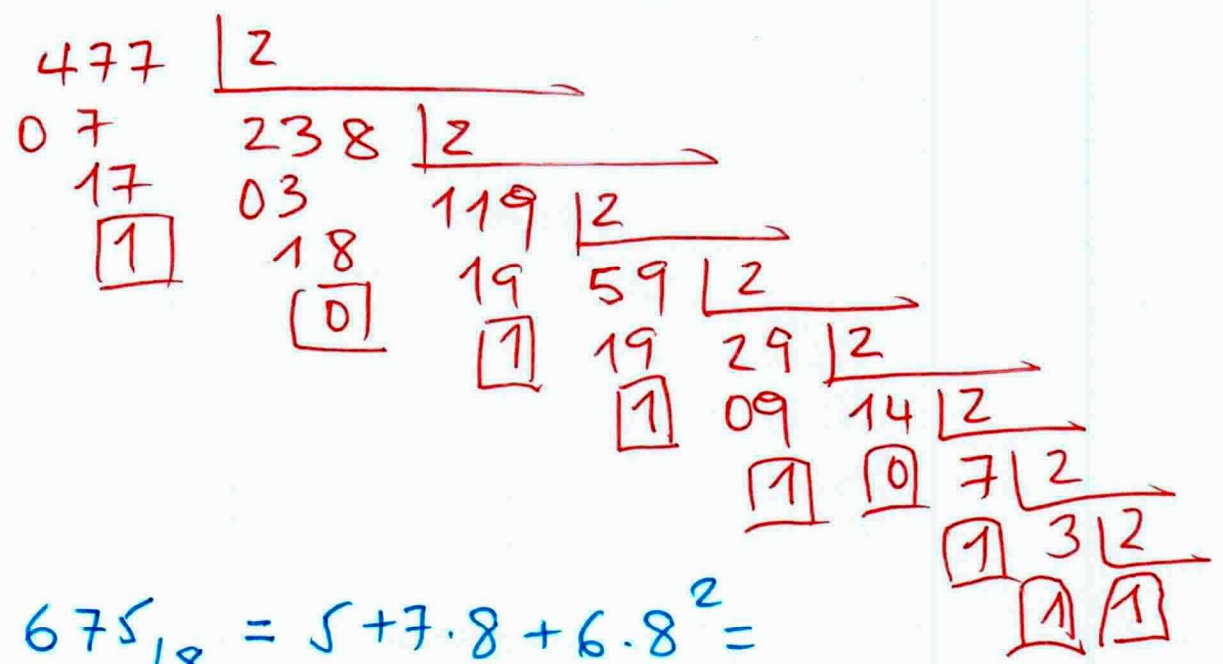 477 2
07 238 2
17 03 119 2
1 18 19 59 2
0 1 19 29 2
1 09 14 2
1 0 7 2
1 3 2
1 1
675₍₈ = 5+7.8+6.8² =